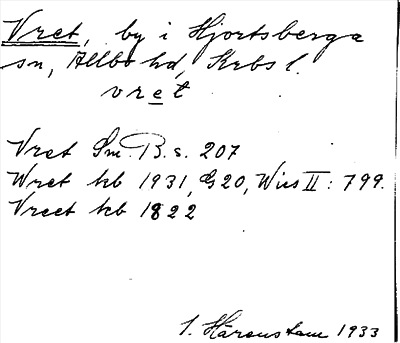 Vret, by i Hjortsberga
sn, Allbo hd, Krbs l.
vret
Vret Sm. B. s. 207
Wret kb 1931, G20, Wies II: 799.
Vreet kb 1822
I. Härenstam 1933